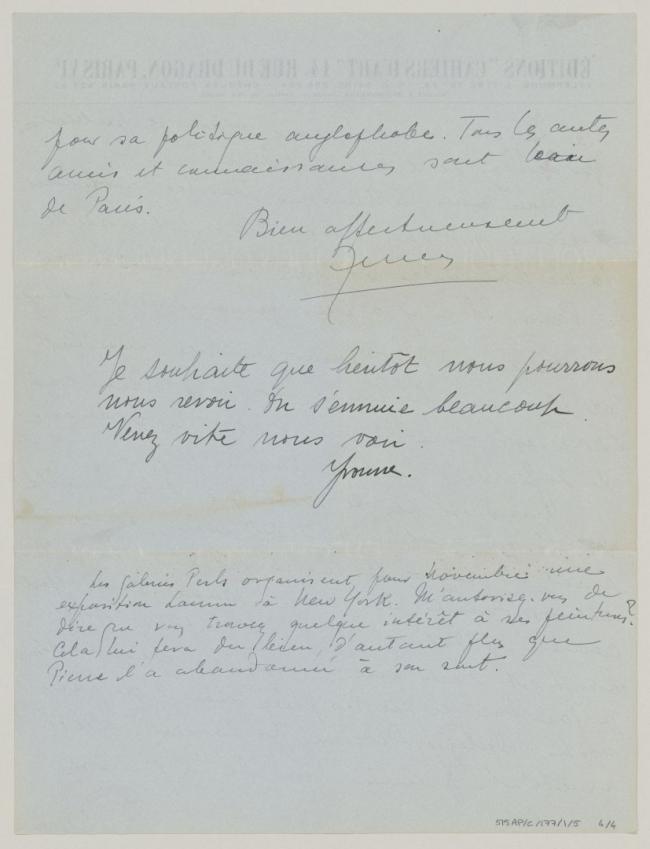 ÉDITIONS "CAHIERS D'ART" 14, RUE DU DRAGON, PARIS VIᵉ
pour sa politique anglophobe. Tous les autres
amis et connaissances sont loin
de Paris.
Bien affectueusement
Je souhaite que bientôt nous pourrons
nous revoir. On s'ennuie beaucoup.
Venez vite nous voir.
Yvonne.
Les galeries Perls organisent pour Novembre une
exposition Laurens à New York. M'autorisez-vous de
dire que vous trouvez quelque intérêt à ses peintures?
Cela lui fera du bien, d'autant plus que
Pierre l'a abandonné à son sort.
515AP/C/177/1/5 4/4